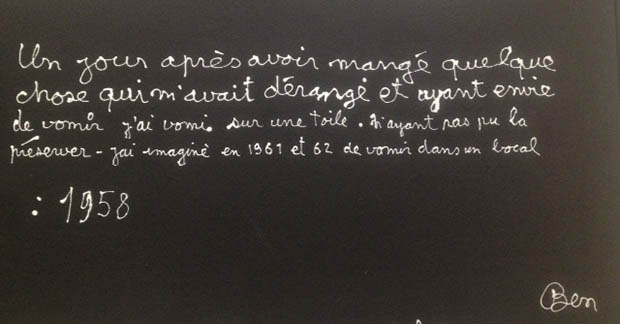 Un jour après avoir mangé quelque
chose qui m'avait dérangé et ayant envie
de vomir j'ai vomi. sur une toile. N'ayant pas pu la
préserver - j'ai imaginé en 1961 et 62 de vomir dans un bocal
: 1958
Ben